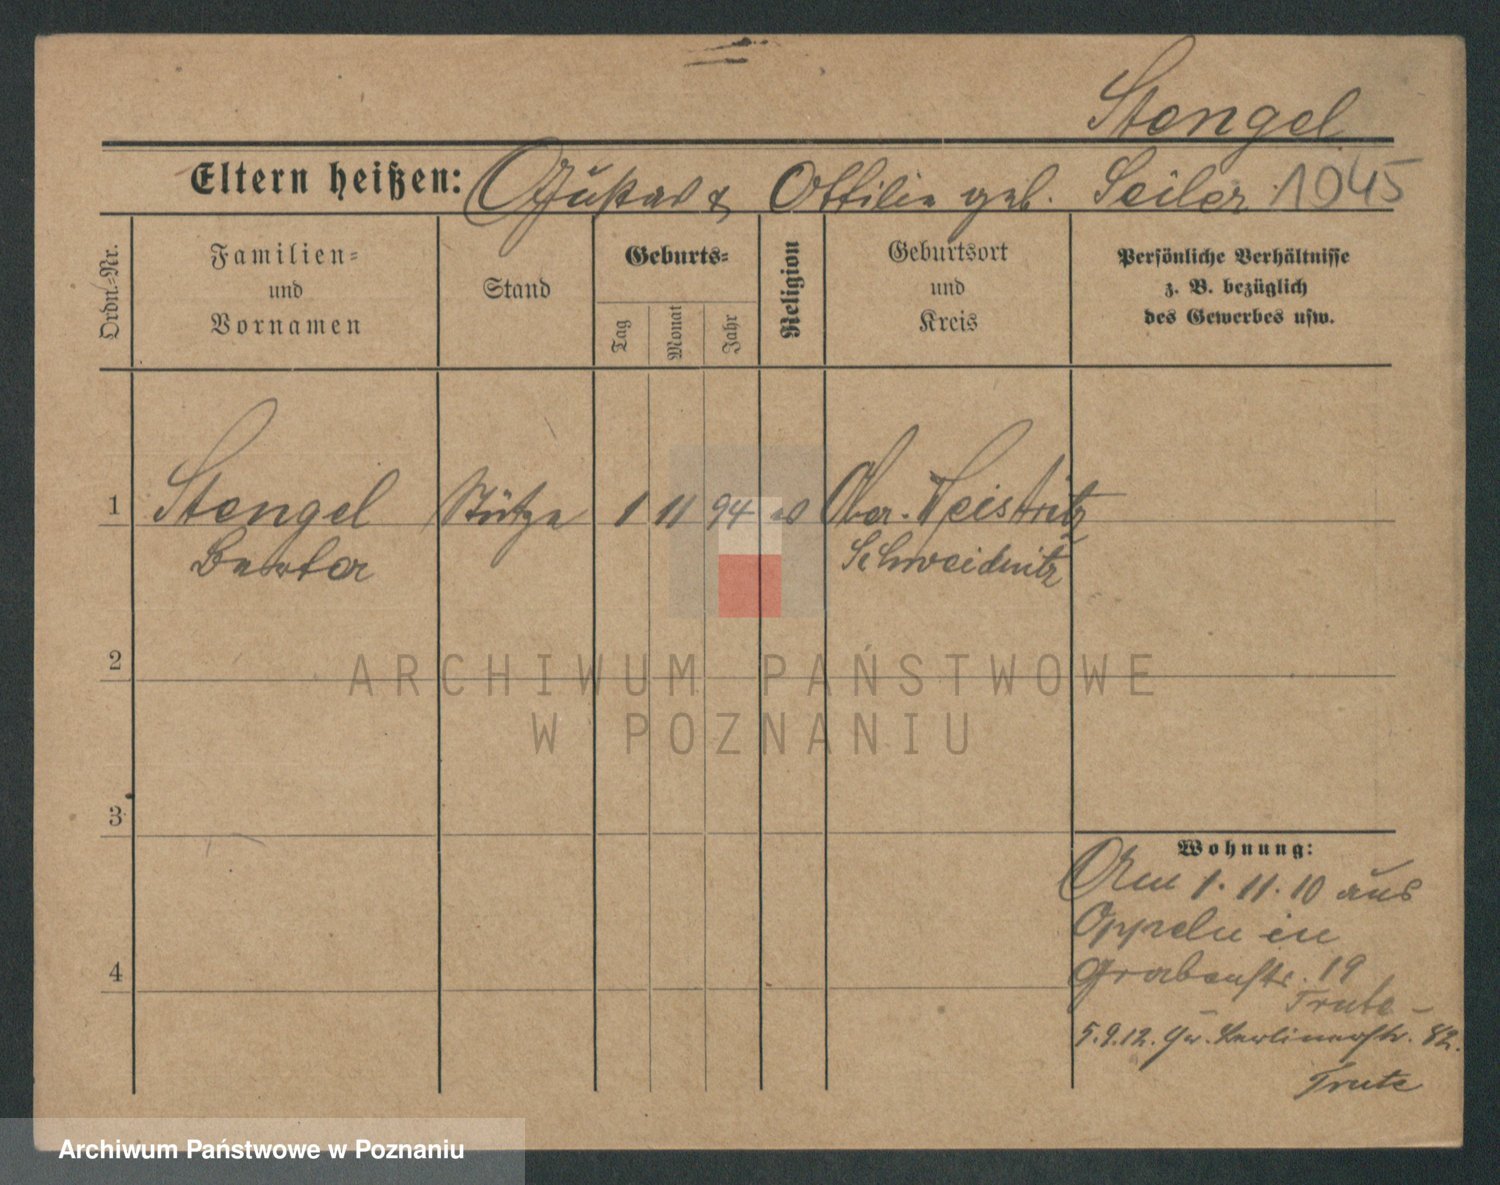 Stengel
Eltern heißen: Gustav & Ottilie geb. Seiler 1045
Ordn.-Nr.
Familien-
und
Vornamen
Stand
Geburts-
Tag
Monat
Jahr
Religion
Geburtsort
und
Kreis
Persönliche Verhältnisse
z. B. bezüglich
des Gewerbes usw.
1 Stengel Stütze 1 11 94 ev Ober-Weistritz
Berta Schweidnitz
2
3
4
Wohnung:
Am 1.11.10 aus
Oppeln in
Grabenstr. 19
Trute
5.9.12. Gr. Berlinerstr. 82.
Trute
ARCHIWUM PAŃSTWOWE
W POZNANIU
Archiwum Państwowe w Poznaniu